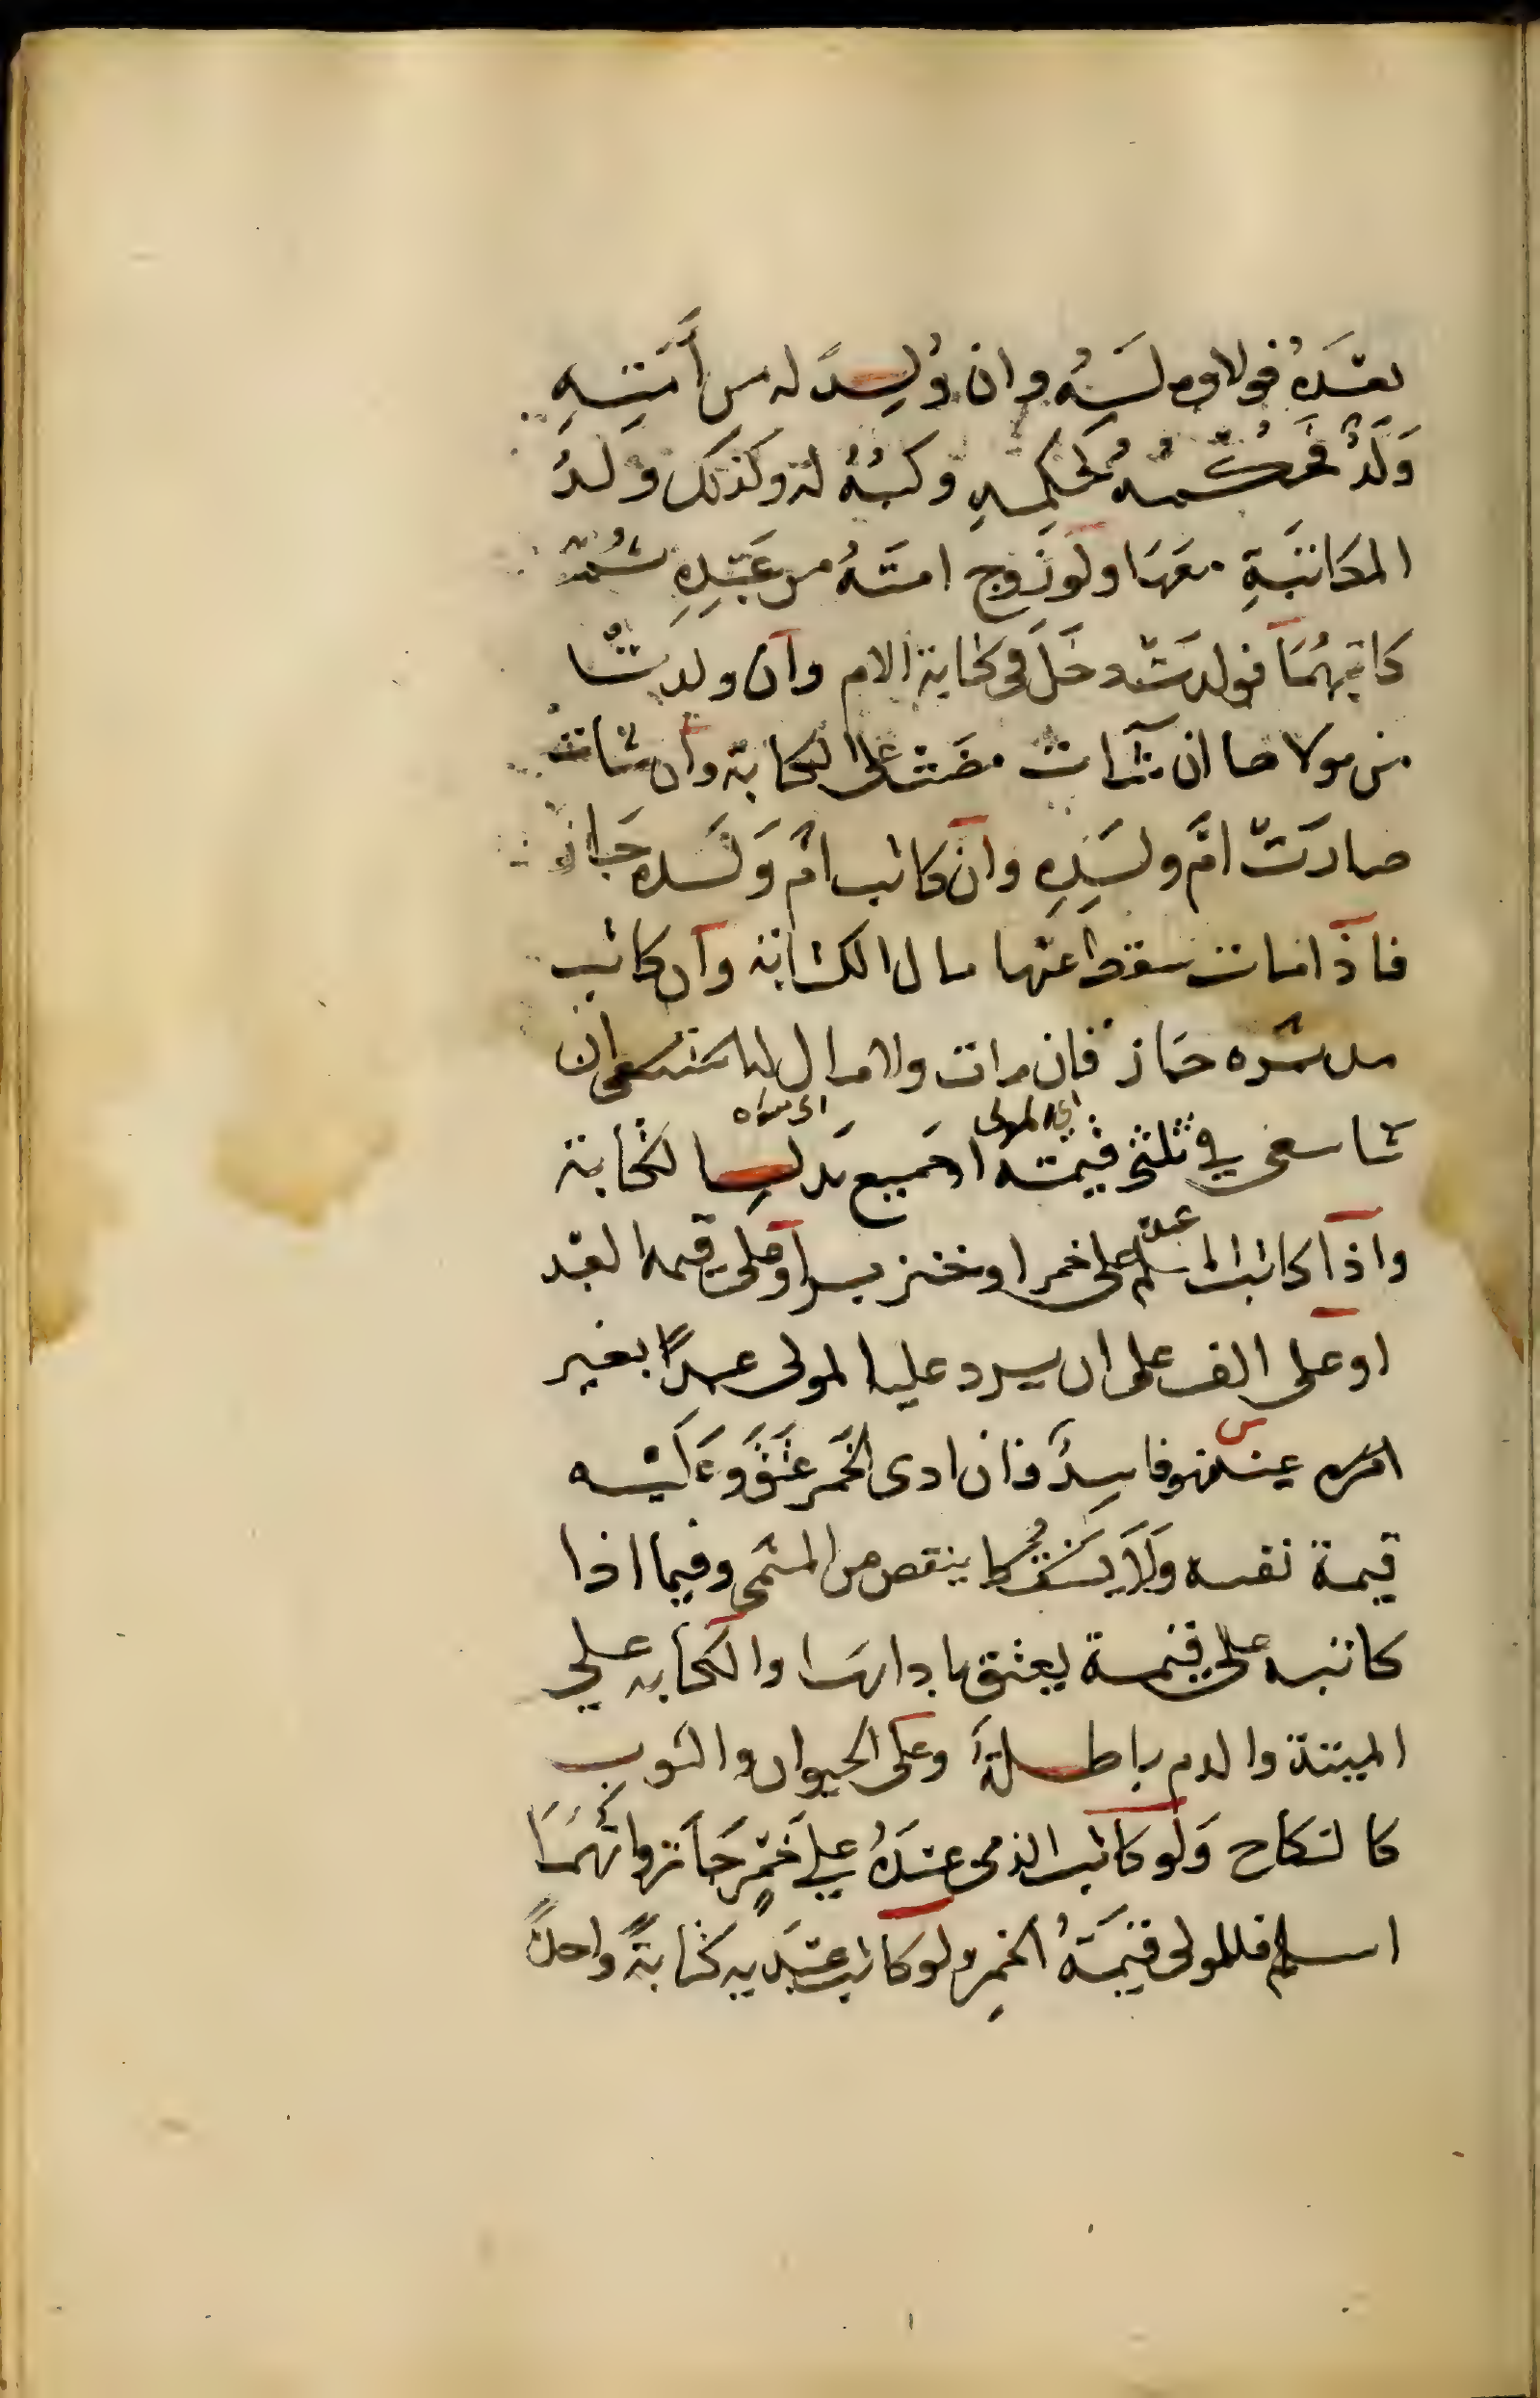 بعتَده فولاوه لَهُ وان وُلِدَ له من أَمَتِهِ
وَلَدٌ فَحُكْمُهُ كحُكمِهِ وكسبُهُ له وكذلك ولدُ
المكاتبَةِ معَهَا ولو زوج امتَهُ من عَبْدِهِ ثُمّ
كاتبهُمَا فولدَت دخَلَ في كتابة الام وان ولدت
من مولاها ان شاءت مضَت على الكتابة وان شاءت
صارَت امَّ ولَدِهِ وان كاتب امّ وَلَده جَاز
فاذا مات سقط عنها مال الكتابة وان كاتب
مدبره جاز فان مات ولا مال له سعى ان
شا سعى في ثلثي قيمته او جميع بدل الكتابة
اي المولى
ان شاء
واذا كاتب المسلم عبده على خمر او خنزير او على قيمه العبد
او على الف على ان يرد عليه المولى عبدًا بغير
عينه فهو فاسدٌ فان ادى الخَمر عَتَقَ وعَلَيْه
قيمة نفسه وَلَا يَنقُص من المسمى وفيما اذا
كاتبه على قيمة يعتق بادايها والكتابه على
الميتة والدم باطلةٌ وعلى الحيوان والثوب
كالنكاح وَلو كاتب الذمى عبدَهُ على خَمرٍ جَاز وايّهُمَا
اسلم فللمولى قيمَةُ الخمرِ ولو كاتب عبدَيه كتابَةً واحدةً